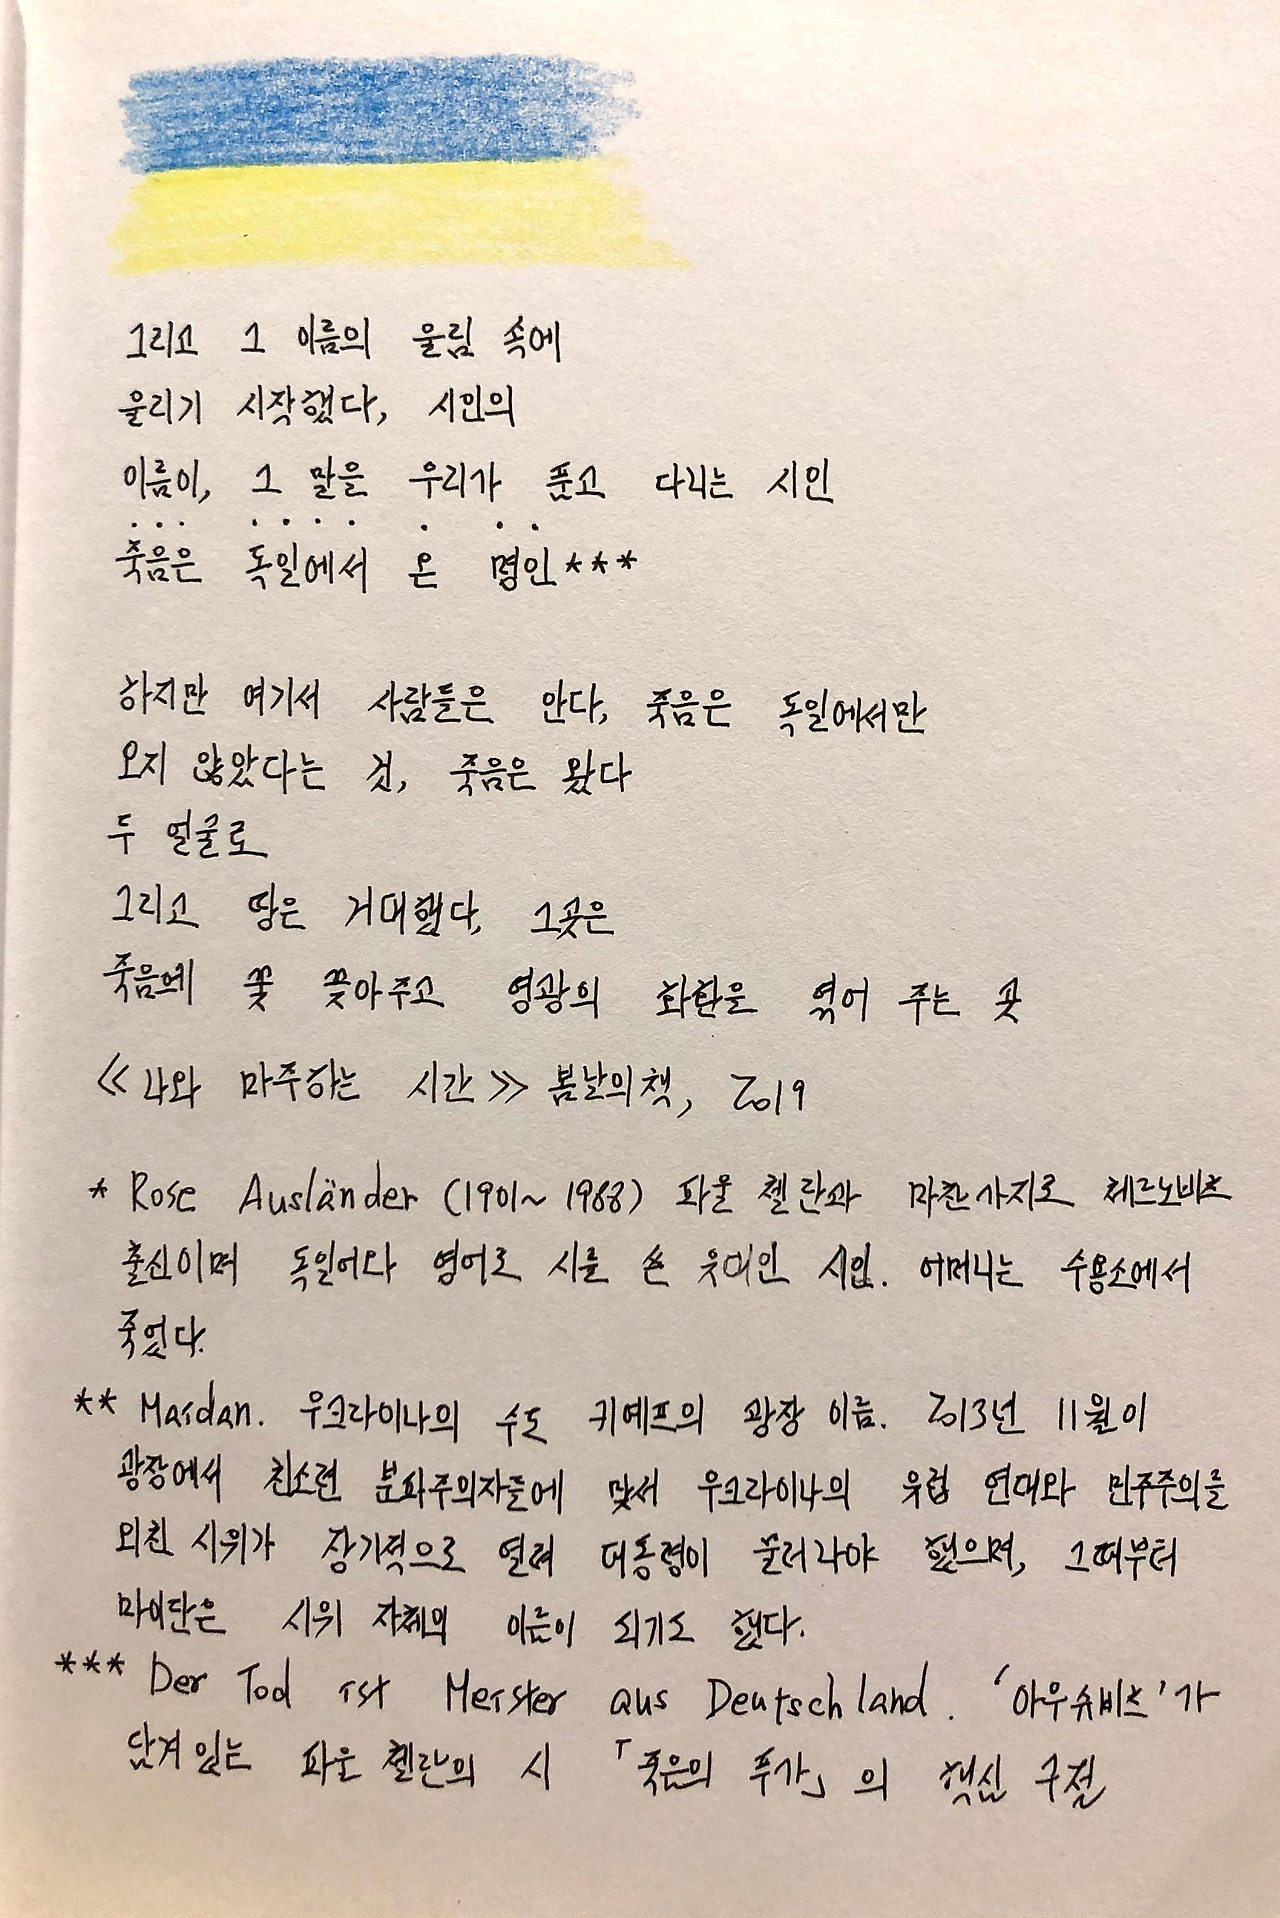 그리고 그 이름의 울림 속에
울리기 시작했다, 시인의
이름이, 그 말을 우리가 품고 다니는 시인
죽음은 독일에서 온 명인***
하지만 여기서 사람들은 안다, 죽음은 독일에서만
오지 않았다는 것, 죽음은 왔다
두 얼굴로
그리고 땅은 거대했다, 그곳은
죽음에 꽃 꽂아주고 영광의 화환을 엮어 주는 곳
≪나와 마주하는 시간≫ 봄날의책, 2019
* Rose Ausländer (1901~1988) 파울 첼란과 마찬가지로 체르노비츠
출신이며 독일어와 영어로 시를 쓴 유대인 시인. 어머니는 수용소에서
죽었다.
** Maidan. 우크라이나의 수도 키예프의 광장 이름. 2013년 11월 이
광장에서 친소련 분파주의자들에 맞서 우크라이나의 유럽 연대와 민주주의를
외친 시위가 장기적으로 열려 대통령이 물러나야 했으며, 그때부터
마이단은 시위 자체의 이름이 되기도 했다.
*** Der Tod ist Meister aus Deutschland. '아우슈비츠'가
담겨있는 파울 첼란의 시 「죽음의 푸가」의 핵심 구절